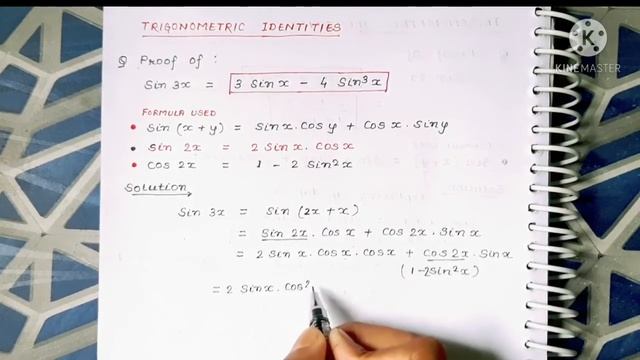 TRIGONOMETRIC IDENTITIES
Q Proof of :
Sin 3x = 3 Sin x - 4 Sin³x
FORMULA USED
• Sin (x+y) = Sinx. Cosy + Cosx. Siny
• Sin 2x = 2 Sinx. Cosx
• Cos 2x = 1 - 2 Sin²x
Solution
Sin 3x = Sin (2x + x)
= Sin 2x. Cos x + Cos 2x. Sin x
= 2 Sin x. Cos x. Cos x + Cos 2x. Sin x
(1-2Sin²x)
= 2 Sinx. Cos²
K
KINEMASTER